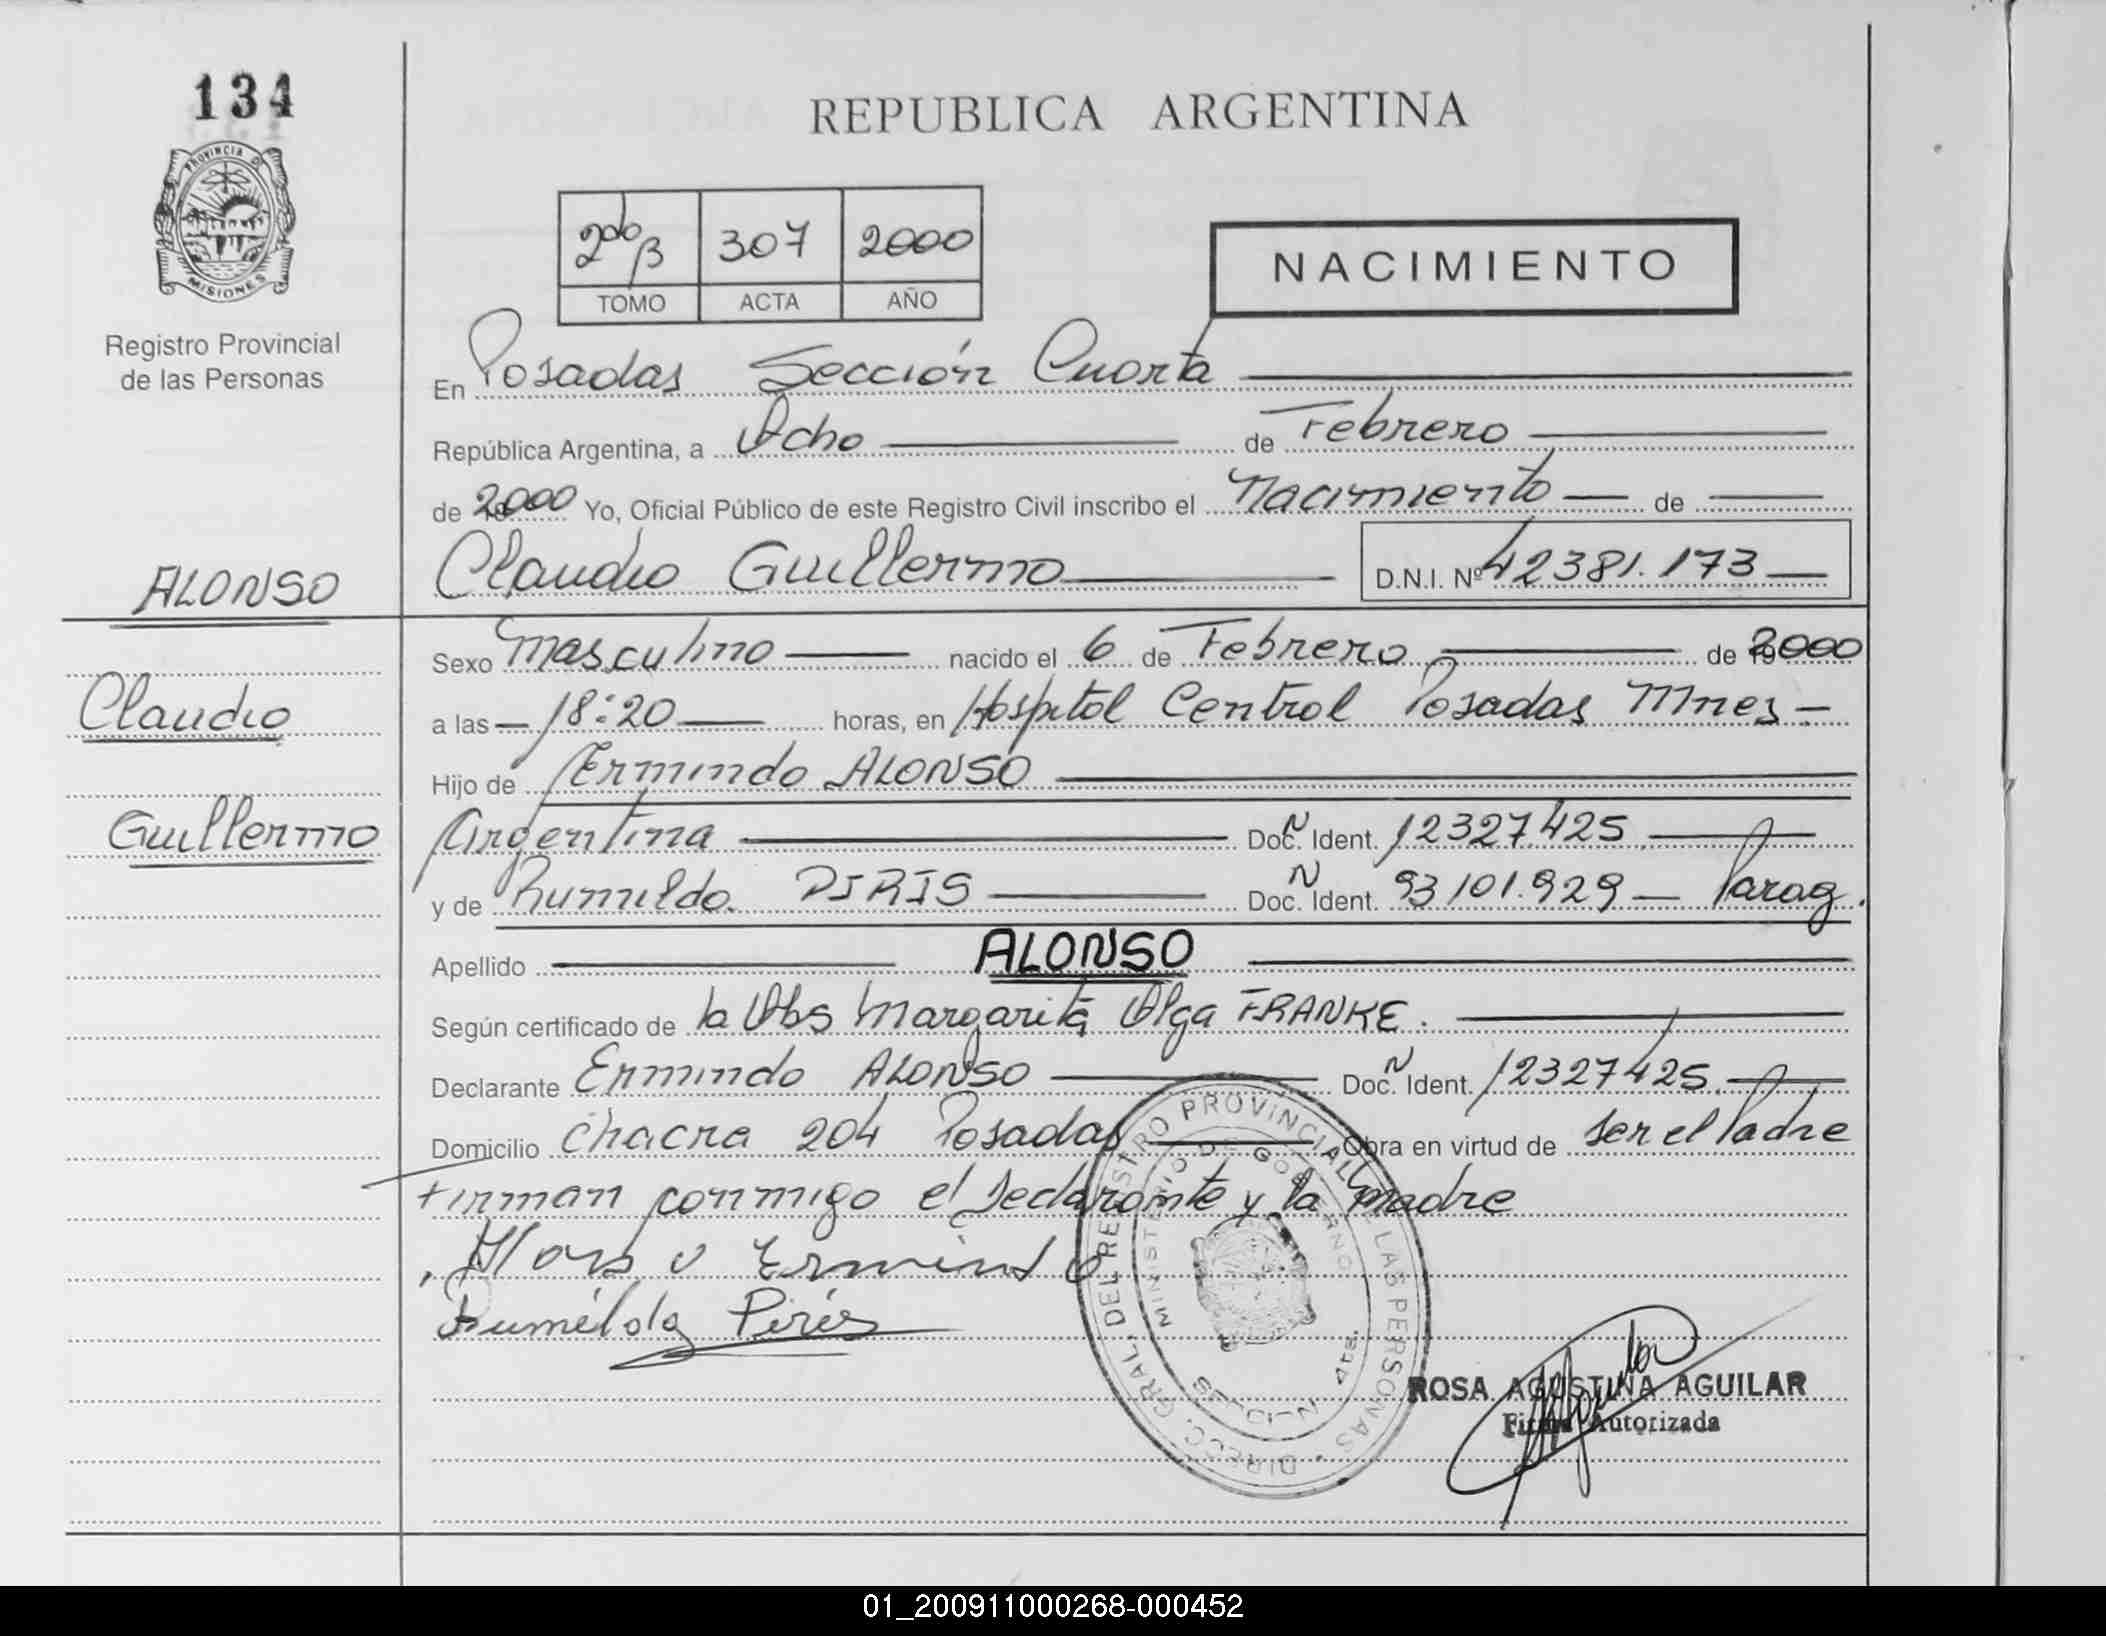 134
REPUBLICA ARGENTINA
PROVINCIA D
MISIONES
Registro Provincial
de las Personas
2do B 307 2000
TOMO ACTA AÑO
NACIMIENTO
En Posadas Sección Cuarta
República Argentina, a Ocho de Febrero
de 2000 Yo, Oficial Público de este Registro Civil inscribo el Nacimiento de
Claudio Guillermo D.N.I. Nº 42381.173
ALONSO
Claudio
Guillermo
Sexo Masculino nacido el 6 de Febrero de 2000
a las 18:20 horas, en Hospital Central Posadas Mnes
Hijo de Ermindo ALONSO
Argentina Doc. N Ident. 12327425
y de Rumilda PIRIS Doc. N Ident. 93101.929 Parag.
Apellido ALONSO
Según certificado de la Obs Margarita Olga FRANKE.
Declarante Ermindo ALONSO Doc. N Ident. 12327425
Domicilio Chacra 204 Posadas Obra en virtud de ser el Padre
Firman conmigo el declarante y la madre
Alonso Ermindo
Rumélda Pirés
DIRECC. GRAL. DEL REGISTRO PROVINCIAL DE LAS PERSONAS
MINISTERIO DE GOBIERNO
MISIONES
4ta.
ROSA AGUSTINA AGUILAR
Firma Autorizada
01_200911000268-000452